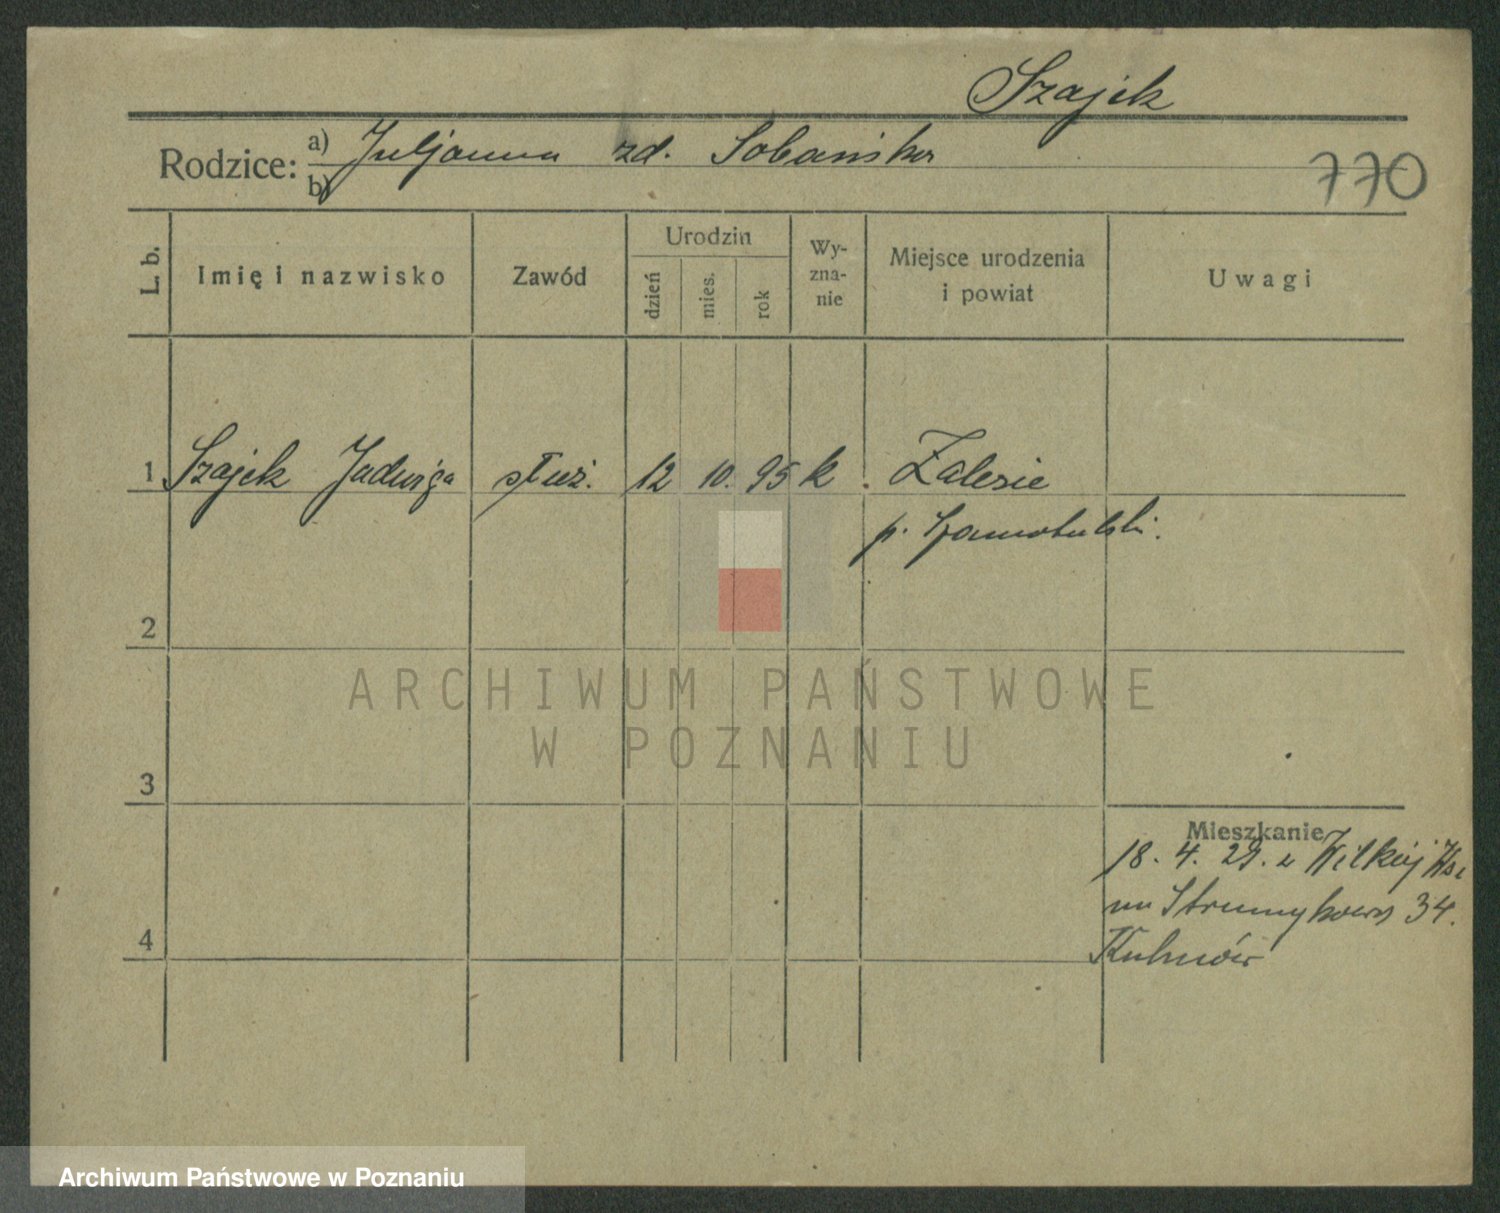 Szajek
Rodzice: a) Juljanna zd. Sobańska
b)
770
L. b. Imię i nazwisko Zawód Urodzin dzień mies. rok Wy-zna-nie Miejsce urodzenia i powiat Uwagi
1 Szajek Jadwiga służ. 12 10. 95 k. Zalesie
p. Szamotulski.
2
ARCHIWUM PAŃSTWOWE
W POZNANIU
3
Mieszkanie
18. 4. 29. z Wilkiej Wsi
na Strumykowa 34.
4
Archiwum Państwowe w Poznaniu